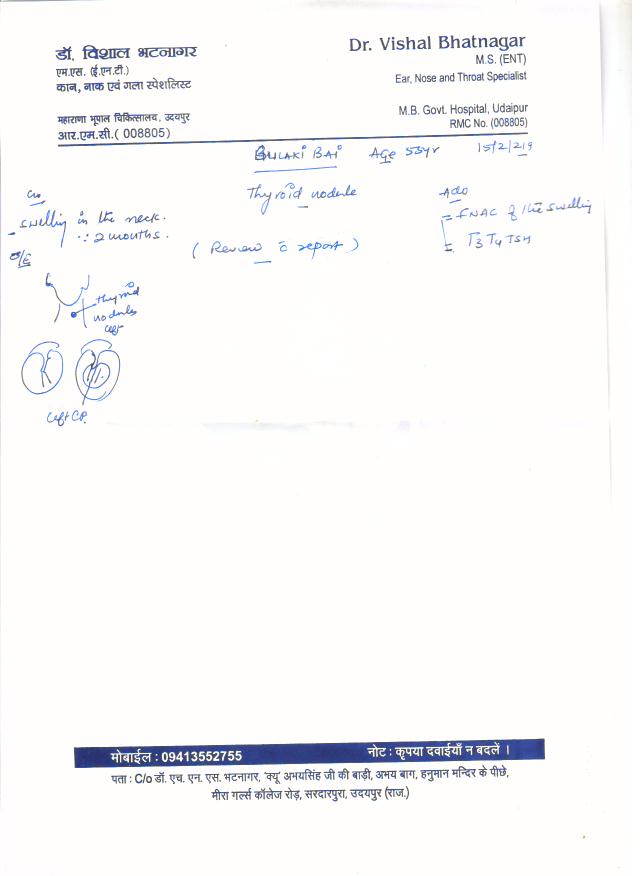 डॉ. विशाल भटनागर
एम.एस. (ई.एन.टी.)
कान, नाक एवं गला स्पेशलिस्ट
महाराणा भूपाल चिकित्सालय, उदयपुर
आर.एम.सी.( 008805)
Dr. Vishal Bhatnagar
M.S. (ENT)
Ear, Nose and Throat Specialist
M.B. Govt. Hospital, Udaipur
RMC No. (008805)
BULAKI BAI AGE 55yr 15/2/219
C/o
- swelling in the neck.
∵ 2 months.
O/E
thyroid
nodules
left
Left CP.
Thyroid nodule
( Review c̄ report )
Adv
= FNAC of the swelling
= T3 T4 TSH
मोबाईल : 09413552755
नोट : कृपया दवाईयाँ न बदलें ।
पता : C/o डॉ. एच. एन. एस. भटनागर, 'क्यू' अभयसिंह जी की बाड़ी, अभय बाग, हनुमान मन्दिर के पीछे,
मीरा गर्ल्स कॉलेज रोड़, सरदारपुरा, उदयपुर (राज.)